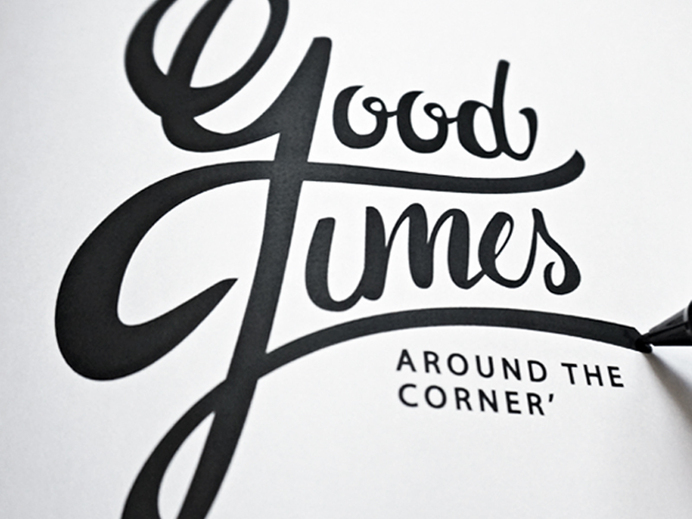 Good
Times
AROUND THE
CORNER’